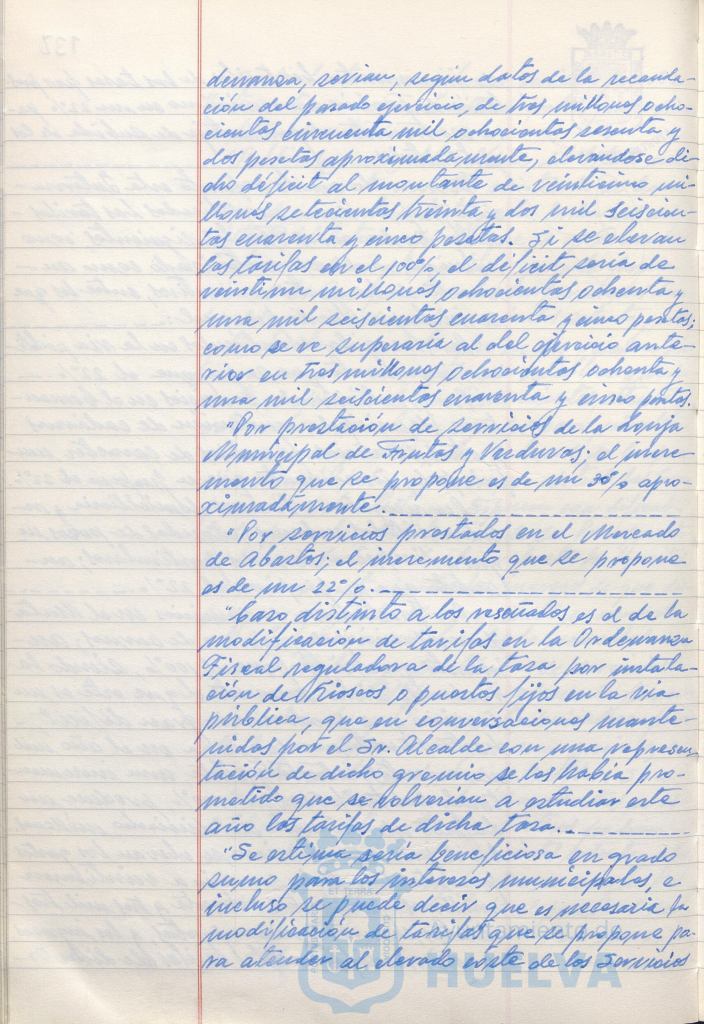 denanza, serian, según datos de la recauda-
ción del pasado ejercicio, de tres millones ocho-
cientas cincuenta mil ochocientas sesenta y
dos pesetas aproximadamente, elevándose di-
cho déficit al montante de veinticinco mi-
llones setecientas treinta y dos mil seiscien-
tas cuarenta y cinco pesetas. Si se elevan
las tarifas en el 100%, el déficit sería de
veintiun millones ochocientas ochenta y
una mil seiscientas cuarenta y cinco pesetas;
como se ve superaría al del ejercicio ante-
rior en tres millones ochocientas ochenta y
una mil seiscientas cuarenta y cinco pesetas.
"Por prestación de servicios de la Lonja
Municipal de Frutas y Verduras; el incre
mento que se propone es de un 30% apro-
ximadamente.
"Por servicios prestados en el Mercado
de Abastos; el incremento que se propone
es de un 22%.
"Caso distinto a los reseñados es el de la
modificación de tarifas en la Ordenanza
Fiscal reguladora de la tasa por instala-
ción de Kioscos o puestos fijos en la via
pública, que en conversaciones mante-
nidas por el Sr. Alcalde con una represen-
tación de dicho gremio se les había pro-
metido que se volverían a estudiar este
año las tarifas de dicha tasa.
"Se estima sería beneficiosa en grado
sumo para los intereses municipales, e
incluso se puede decir que es necesaria la
modificación de tarifas que se propone pa-
ra atender al elevado coste de los servicios
HUELVA